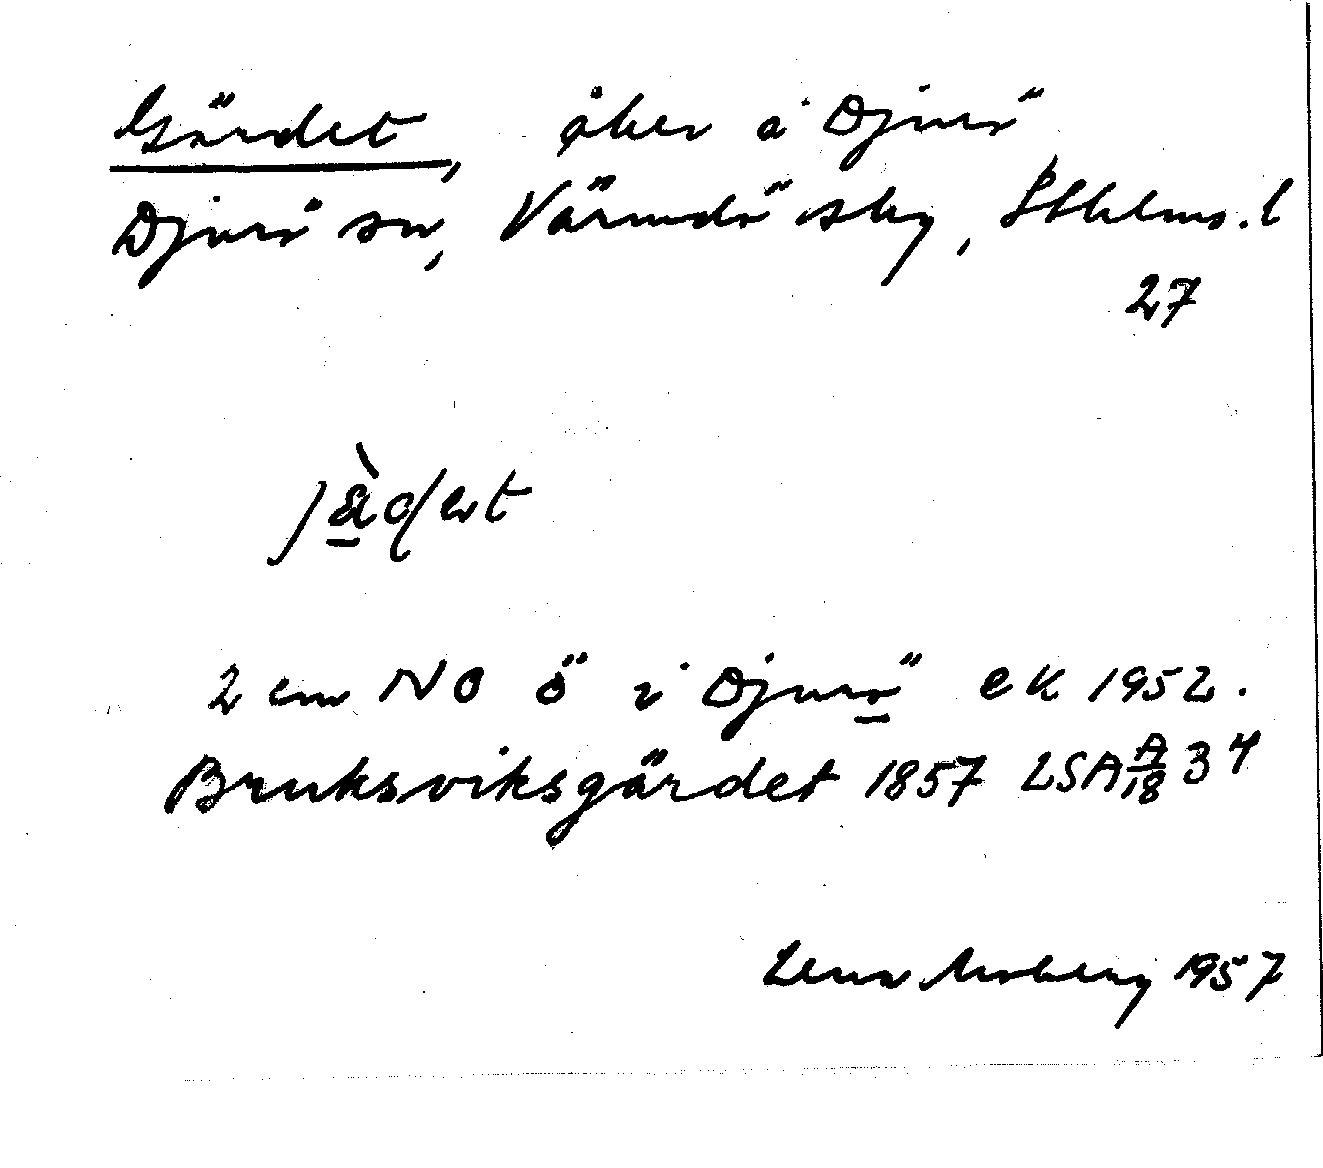 Gärdet, åker å Djurö
Djurö sn, Värmdö skg, Sthlms. l
27
jä̀det
2 cm NO ö i Djurö ek 1952.
Bruksviksgärdet 1857 LSA A/18 34
Lena Moberg 1957